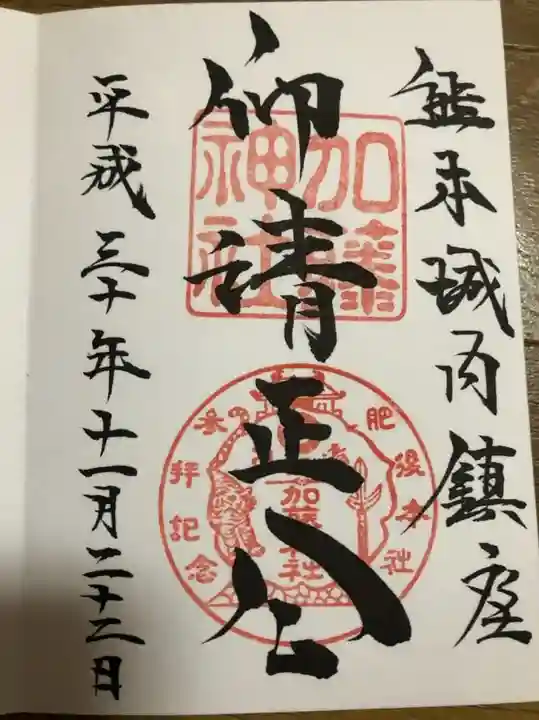 熊本城内鎮座
仰清正公
加藤神社
肥後本社
参拝記念
加藤神社
平成三十年十一月二十二日